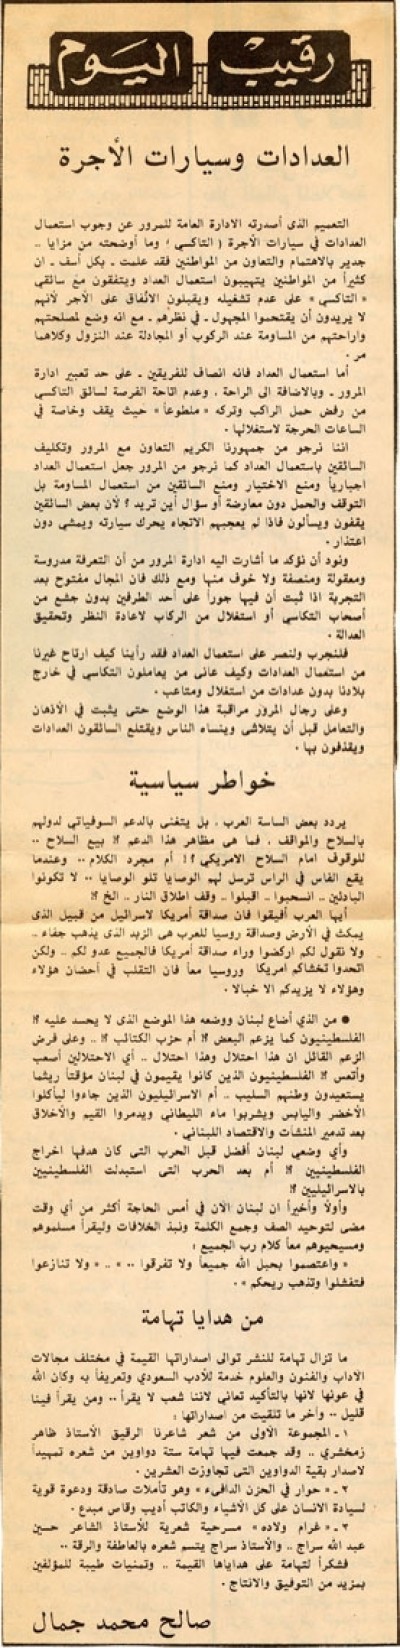 رقيب اليوم
العدادات وسيارات الأجرة
التعميم الذى أصدرته الادارة العامة للمرور عن وجوب استعمال
العدادات في سيارات الأجرة ( التاكسي ) وما أوضحته من مزايا ..
جدير بالاهتمام والتعاون من المواطنين فقد علمت ـ بكل أسف ـ ان
كثيراً من المواطنين يتهيبون استعمال العداد ويتفقون مع سائقي
« التاكسي » على عدم تشغيله ويقبلون الاتفاق على الأجر لأنهم
لا يريدون أن يقتحموا المجهول ـ في نظرهم ـ مع انه وضع لمصلحتهم
واراحتهم من المساومة عند الركوب أو المجادلة عند النزول وكلاهما
مر .
أما استعمال العداد فانه انصاف للفريقين ـ على حد تعبير ادارة
المرور ـ وبالاضافة الى الراحة ، وعدم اتاحة الفرصة لسائق التاكسي
من رفض حمل الراكب وتركه « ملطوعاً » حيث يقف وخاصة في
الساعات الحرجة لاستغلالها .
اننا نرجو من جمهورنا الكريم التعاون مع المرور وتكليف
السائقين باستعمال العداد كما نرجو من المرور جعل استعمال العداد
اجبارياً ومنع الاختيار ومنع السائقين من استعمال المساومة بل
التوقف والحمل دون معارضة أو سؤال أين تريد ؟ لأن بعض السائقين
يقفون ويسألون فاذا لم يعجبهم الاتجاه يحرك سيارته ويمشي دون
اعتذار .
ونود أن نؤكد ما أشارت اليه ادارة المرور من أن التعرفة مدروسة
ومعقولة ومنصفة ولا خوف منها ومع ذلك فان المجال مفتوح بعد
التجربة اذا ثبت أن فيها جوراً على أحد الطرفين بدون جشع من
أصحاب التكاسي أو استغلال من الركاب لاعادة النظر وتحقيق
العدالة .
فلنجرب ولنصر على استعمال العداد فقد رأينا كيف ارتاح غيرنا
من استعمال العدادات وكيف عانى من يعاملون التكاسي في خارج
بلادنا بدون عدادات من استغلال ومتاعب .
وعلى رجال المرور مراقبة هذا الوضع حتى يثبت في الأذهان
والتعامل قبل أن يتلاشى وينساه الناس ويقتلع السائقون العدادات
ويقذفون بها .
خواطر سياسية
يردد بعض الساسة العرب ، بل يتغنى بالدعم السوفياتي لدولهم
بالسلاح والمواقف ، فما هى مظاهر هذا الدعم ؟! بيع السلاح ..
للوقوف امام السلاح الامريكي ؟! أم مجرد الكلام .. وعندما
يقع الفاس في الراس ترسل لهم الوصايا تلو الوصايا .. لا تكونوا
البادئين .. انسحبوا .. اقبلوا .. وقف اطلاق النار .. الخ ؟!
أيها العرب أفيقوا فان صداقة أمريكا لاسرائيل من قبيل الذى
يمكث في الأرض وصداقة روسيا للعرب هى الزبد الذى يذهب جفاء ..
ولا نقول لكم اركضوا وراء صداقة أمريكا فالجميع عدو لكم .. ولكن
اتحدوا تخشاكم امريكا وروسيا معاً فان التقلب في أحضان هؤلاء
وهؤلاء لا يزيدكم الا خبالا .
● من الذي أضاع لبنان ووضعه هذا الموضع الذى لا يحسد عليه ؟!
الفلسطينيون كما يزعم البعض ؟! أم حزب الكتائب ؟! .. وعلى فرض
الزعم القائل ان هذا احتلال وهذا احتلال .. أي الاحتلالين أصعب
وأتعس ؟! الفلسطينيون الذين كانوا يقيمون في لبنان مؤقتاً ريثما
يستعيدون وطنهم السليب .. أم الاسرائيليون الذين جاءوا ليأكلوا
الأخضر واليابس ويشربوا ماء الليطاني ويدمروا القيم والأخلاق
بعد تدمير المنشآت والاقتصاد اللبناني .
وأي وضعي لبنان أفضل قبل الحرب التى كان هدفها اخراج
الفلسطينيين ؟! أم بعد الحرب التى استبدلت الفلسطينيين
بالاسرائيليين ؟!
وأولاً وأخيراً ان لبنان الآن في أمس الحاجة أكثر من أي وقت
مضى لتوحيد الصف وجمع الكلمة ونبذ الخلافات وليقرأ مسلموهم
ومسيحيوهم معاً كلام رب الجميع :
« واعتصموا بحبل الله جميعاً ولا تفرقوا .. » .. « ولا تنازعوا
فتفشلوا وتذهب ريحكم » .
من هدايا تهامة
ما تزال تهامة للنشر توالى اصداراتها القيمة في مختلف مجالات
الآداب والفنون والعلوم خدمة للأدب السعودي وتعريفاً به وكان الله
في عونها لانها بالتأكيد تعاني لاننا شعب لا يقرأ .. ومن يقرأ فينا
قليل .. وآخر ما تلقيت من اصداراتها :
١ ـ المجموعة الأولى من شعر شاعرنا الرقيق الأستاذ طاهر
زمخشري .. وقد جمعت فيها تهامة ستة دواوين من شعره تمهيداً
لاصدار بقية الدواوين التى تجاوزت العشرين .
٢ ـ « حوار في الحزن الدافىء » وهو تأملات صادقة ودعوة قوية
لسيادة الانسان على كل الأشياء والكاتب أديب وقاص مبدع .
٣ ـ « غرام ولاده » مسرحية شعرية للأستاذ الشاعر حسين
عبد الله سراج .. والأستاذ سراج يتسم شعره بالعاطفة والرقة ..
فشكراً لتهامة على هداياها القيمة .. وتمنيات طيبة للمؤلفين
بمزيد من التوفيق والانتاج .
صالح محمد جمال